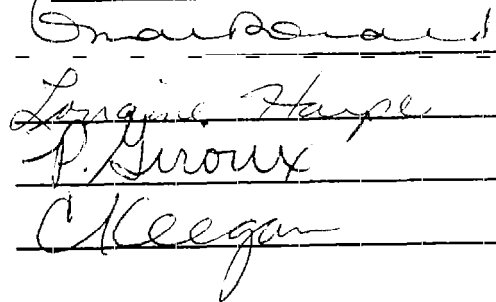 Lorraine Harper
P. Giroux
C Keegan